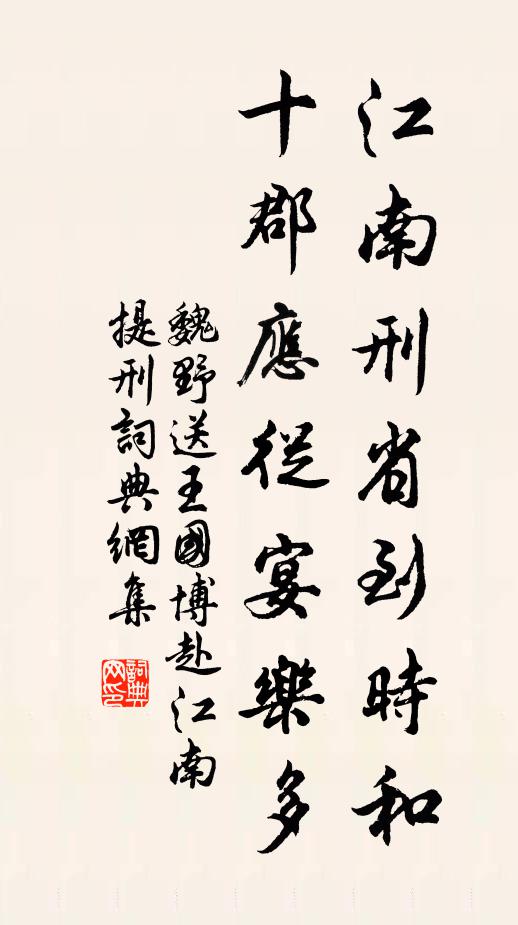 江南刑省到時和
十郡應從宴樂多
魏野送王國博赴江南
提刑詞典網集
詞典网印